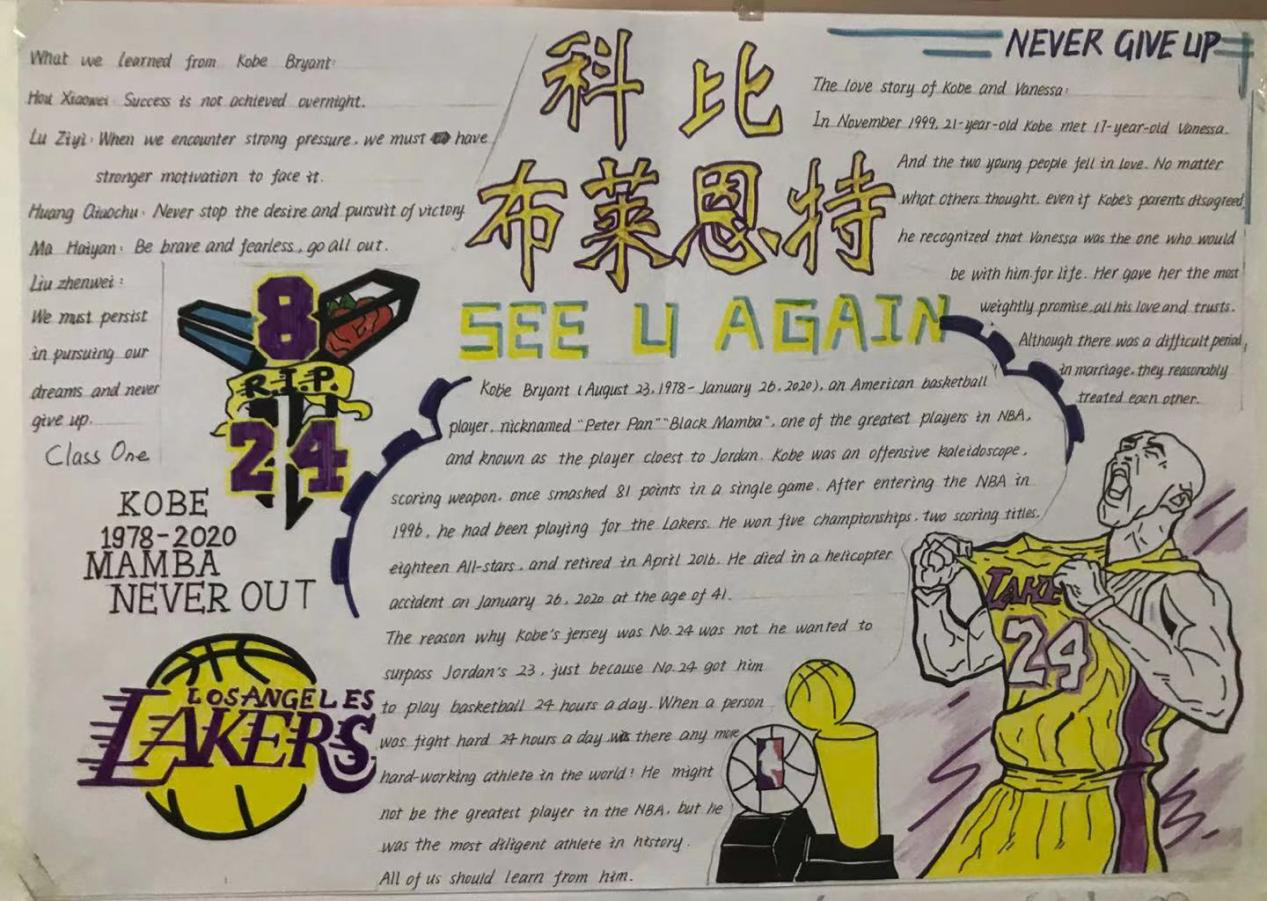 What we learned from Kobe Bryant:
Hou Xiaowei: Success is not achieved overnight.
Lu Ziyi: When we encounter strong pressure, we must have
stronger motivation to face it.
Huang Qiaochu: Never stop the desire and pursuit of victory
Ma Haiyan: Be brave and fearless, go all out.
Liu zhenwei:
We must persist
in pursuing our
dreams and never
give up.
Class One
科比
布莱恩特
SEE U AGAIN
NEVER GIVE UP
The love story of Kobe and Vanessa:
In November 1999, 21-year-old Kobe met 17-year-old Vanessa.
And the two young people fell in love. No matter
what others thought, even if Kobe's parents disagreed,
he recognized that Vanessa was the one who would
be with him for life. Her gave her the most
weightly promise, all his love and trusts.
Although there was a difficult period,
in marriage, they reasonably
treated each other.
8
R.I.P.
24
KOBE
1978-2020
MAMBA
NEVER OUT
LOS ANGELES
LAKERS
Kobe Bryant (August 23, 1978- January 26, 2020), an American basketball
player, nicknamed "Peter Pan" "Black Mamba", one of the greatest players in NBA,
and known as the player cloest to Jordan. Kobe was an offensive kaleidoscope,
scoring weapon, once smashed 81 points in a single game. After entering the NBA in
1996, he had been playing for the Lakers. He won five championships, two scoring titles,
eighteen All-stars, and retired in April 2016. He died in a helicopter
accident on January 26, 2020 at the age of 41.
The reason why Kobe's jersey was No.24 was not he wanted to
surpass Jordan's 23, just because No.24 got him
to play basketball 24 hours a day. When a person
was fight hard 24 hours a day was there any more
hard-working athlete in the world! He might
not be the greatest player in the NBA, but he
was the most diligent athlete in history.
All of us should learn from him.
LAKE
24